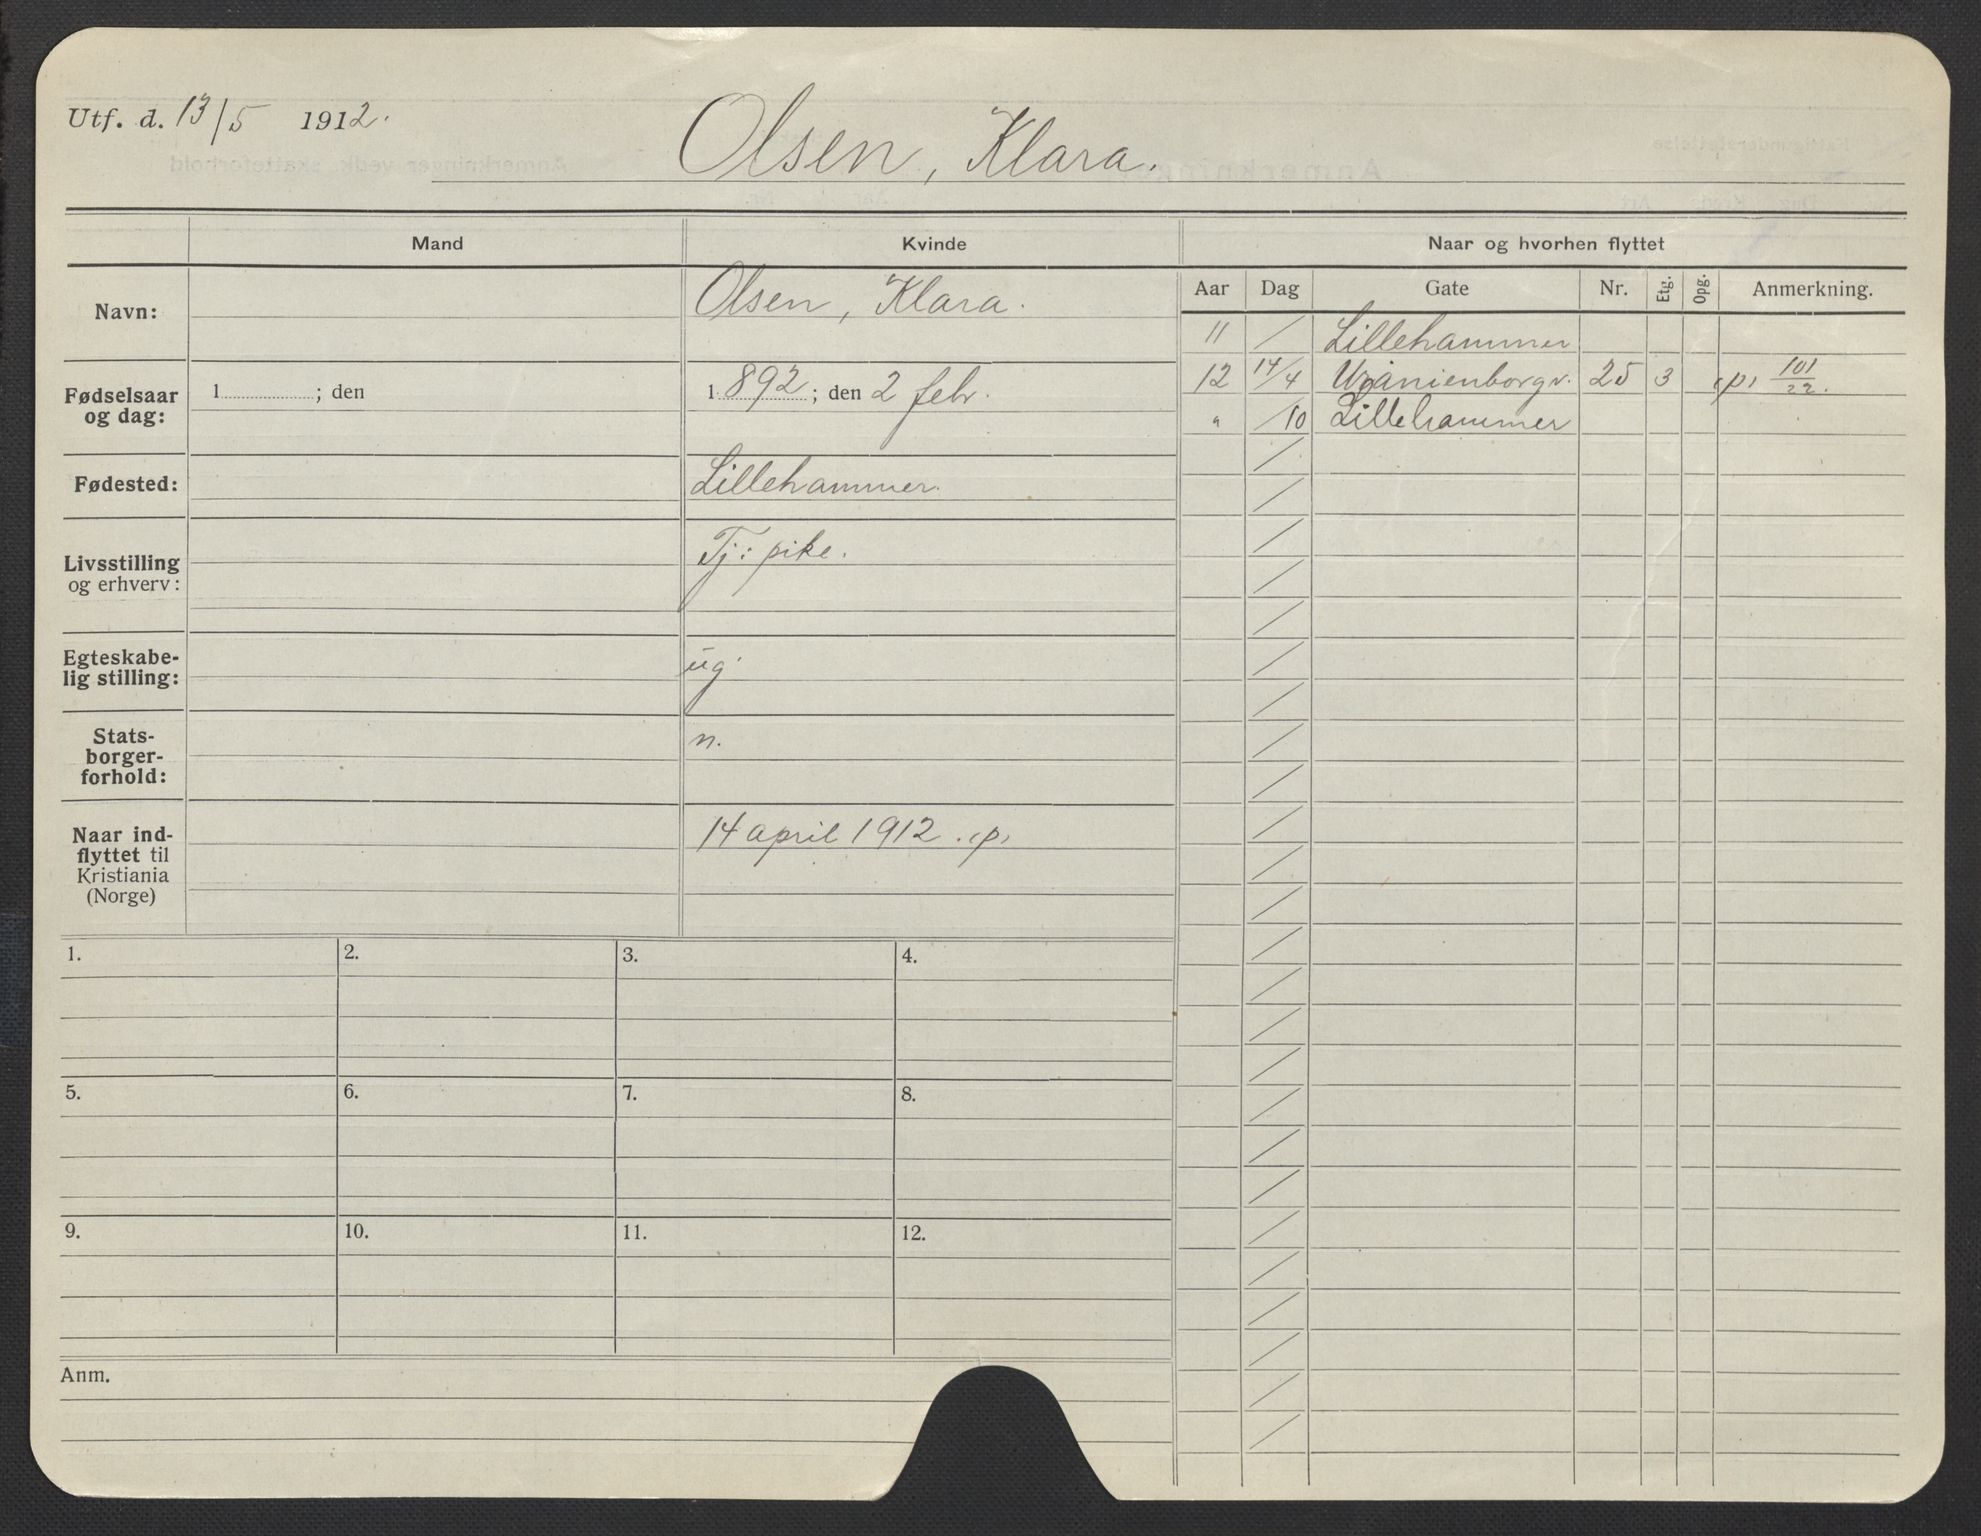 Utf. d. 13/5 1912.
Olsen, Klara.
Mand
Kvinde
Naar og hvorhen flyttet
Navn:
Olsen, Klara.
Aar Dag Gate Nr. Etg. Opg. Anmerkning.
11 / Lillehammer
12 14/4 Uranienborgv. 25 3 (p) 101/22.
" /10 Lillehammer
Fødselsaar
og dag:
1 ; den
1 892 ; den 2 febr.
Fødested:
Lillehammer.
Livsstilling
og erhverv:
Tj: pike.
Egteskabe-
lig stilling:
ug.
Stats-
borger-
forhold:
n.
Naar ind-
flyttet til
Kristiania
(Norge)
14 april 1912. (p)
1. 2. 3. 4.
5. 6. 7. 8.
9. 10. 11. 12.
Anm.